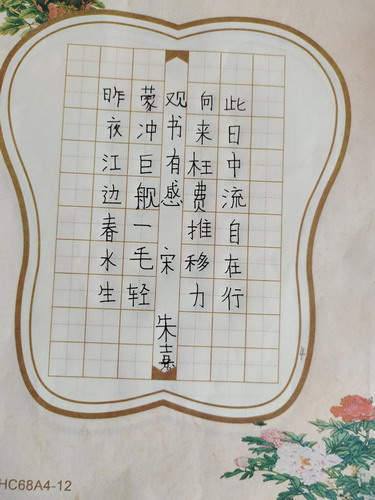 观书有感 宋 朱熹
昨夜江边春水生
蒙冲巨舰一毛轻
向来枉费推移力
此日中流自在行
4
HC68A4-12